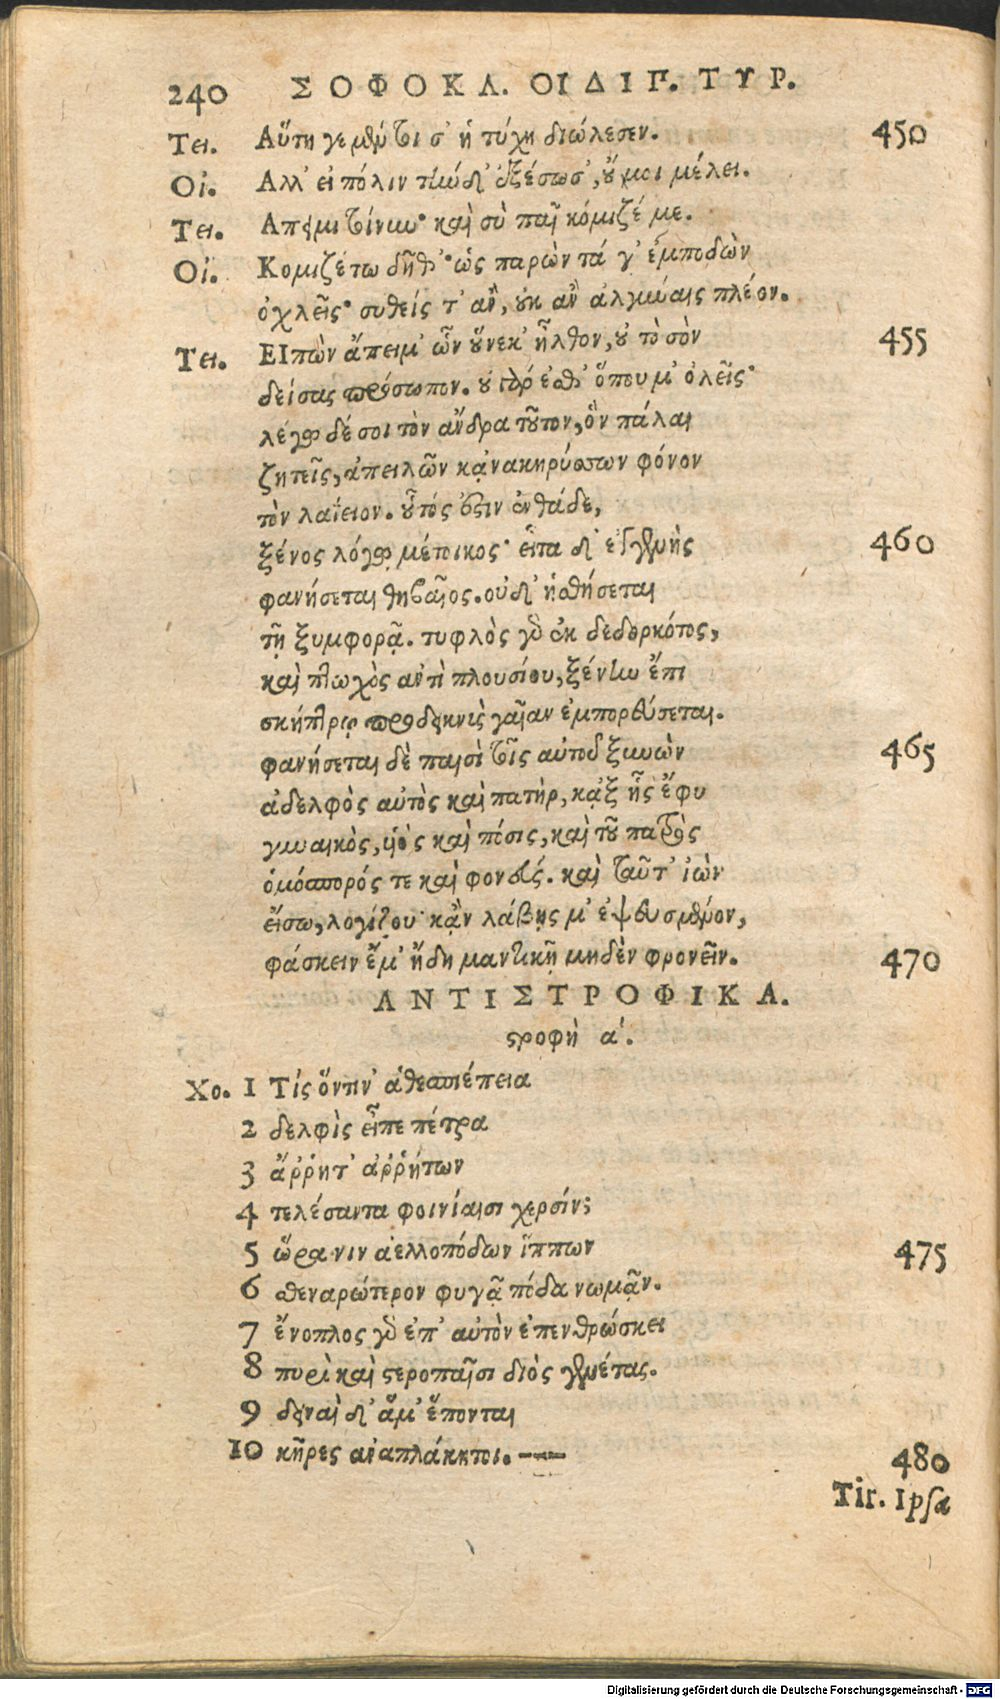 240 ΣΟΦΟΚΛ. ΟΙΔΙΠ. ΤΥΡ.
Τει. Αὕτη γε μέντοι σ' ἡ τύχη διώλεσεν. 450
Οἰ. Αλλ' εἰ πόλιν τήνδ' ἐξέσωσ', οὔ μοι μέλει.
Τει. Απειμι τοίνυν· καὶ σὺ παῖ κόμιζέ με.
Οἰ. Κομιζέτω δῆθ'· ὡς παρὼν τά γ' ἐμποδὼν
ὀχλεῖς· συθείς τ' ἂν, οὐκ ἂν ἀλγύναις πλέον.
Τει. ΕΙπὼν ἄπειμ' ὧν οὕνεκ' ἦλθον, οὐ τὸ σὸν 455
δείσας πρόσωπον. οὐ γὰρ ἐσθ' ὅπου μ' ὀλεῖς·
λέγω δέ σοι τὸν ἄνδρα τοῦτον, ὃν πάλαι
ζητεῖς, ἀπειλῶν κᾀνακηρύσσων φόνον
τὸν λαΐειον. οὗτός ἐστιν ἐνθάδε,
ξένος λόγῳ μέτοικος· εἶτα δ' ἐγγενὴς 460
φανήσεται θηβαῖος. οὐδ' ἡσθήσεται
τῇ ξυμφορᾷ. τυφλὸς γὰρ ἐκ δεδορκότος,
καὶ πτωχὸς ἀντὶ πλουσίου, ξένην ἔπι
σκήπτρῳ προδεικνὺς γαῖαν ἐμπορεύσεται.
φανήσεται δὲ παισὶ τοῖς αὐτοῦ ξυνὼν 465
ἀδελφὸς αὐτὸς καὶ πατὴρ, κᾀξ ἧς ἔφυ
γυναικὸς, υἱὸς καὶ πόσις, καὶ τοῦ πατρὸς
ὁμόσπορός τε καὶ φονεύς. καὶ ταῦτ' ἰὼν
εἴσω, λογίζου· κᾂν λάβῃς μ' ἐψευσμένον,
φάσκειν ἔμ' ἤδη μαντικῇ μηδὲν φρονεῖν. 470
ΑΝΤΙΣΤΡΟΦΙΚΑ.
στροφὴ α΄.
Χο. 1 Τίς ὅντιν' ἁ θεσπιέπεια
2 δελφὶς εἶπε πέτρα
3 ἄῤῥητ' ἀῤῥήτων
4 τελέσαντα φοινίαισι χερσίν;
5 ὥρα νιν ἀελλοπόδων ἵππων 475
6 σθεναρώτερον φυγᾷ πόδα νωμᾷν.
7 ἔνοπλος γὰρ ἐπ' αὐτὸν ἐπενθρώσκει
8 πυρὶ καὶ στεροπαῖσι διὸς γενέτας.
9 δειναὶ δ' ἅμ' ἕπονται
10 κῆρες ἀναπλάκητοι. — 480
Tir. Ipsa
Digitalisierung gefördert durch die Deutsche Forschungsgemeinschaft - DFG